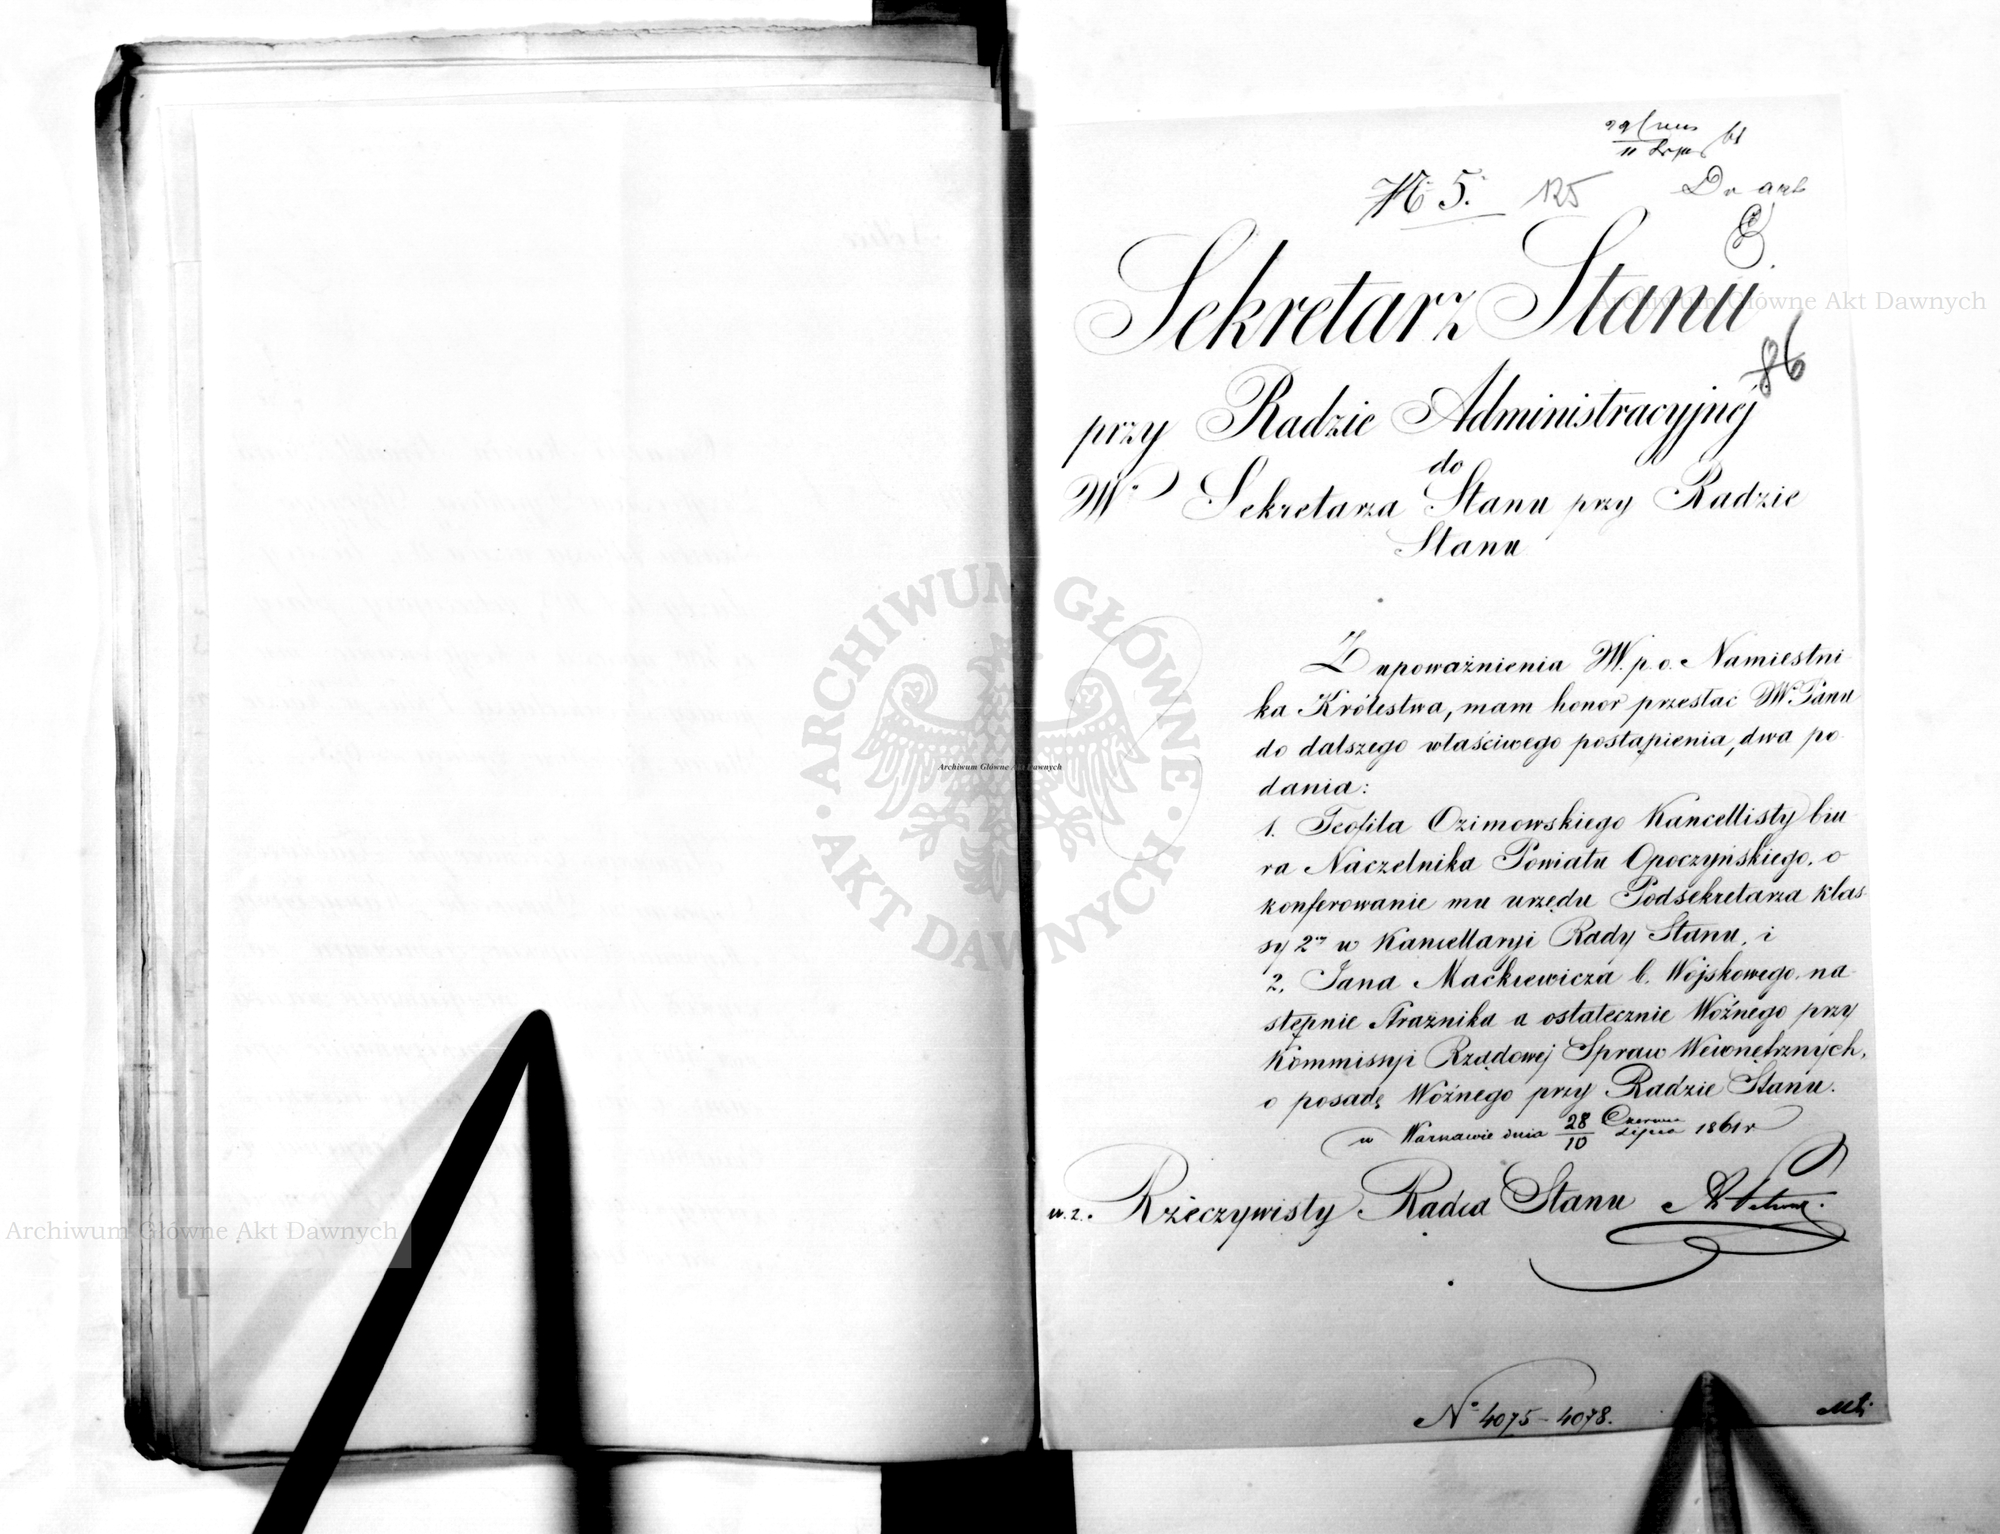 № 5. 125
Do akt
Sekretarz Stanu
86
przy Radzie Administracyjnej
do
W° Sekretarza Stanu przy Radzie
Stanu
Z upoważnienia W. p. o. Namiestni-
ka Królestwa, mam honor przesłać W. Panu
do dalszego właściwego postąpienia, dwa po-
dania:
1. Teofila Ozimowskiego Kancellisty biu-
ra Naczelnika Powiatu Opoczyńskiego, o
konferowanie mu urzędu Podsekretarza klas-
sy 2ej w Kancellaryi Rady Stanu, i
2. Jana Mackiewicza b. Wojskowego, na-
stępnie Strażnika a ostatecznie Woźnego przy
Kommissyi Rządowej Spraw Wewnętrznych,
o posadę Woźnego przy Radzie Stanu.
w Warszawie dnia 28/10 Czerwca/Lipca 1861 r
w. z. Rzeczywisty Radca Stanu
N° 4075 - 4078.
Archiwum Główne Akt Dawnych
ARCHIWUM GŁÓWNE AKT DAWNYCH
Archiwum Główne Akt Dawnych
Archiwum Główne Akt Dawnych